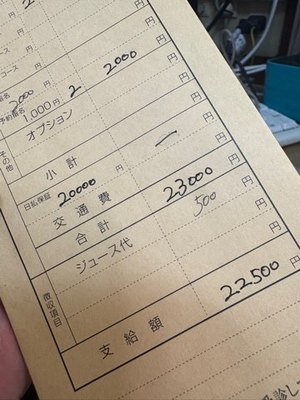 円
コース 円
2000 円
予約指名 1,000円 2 2000 円
オプション 円
その他 円
小計 一 円
日払保証 20000 円
交通費 23000 円
合計 500 円
ジュース代 円
徴収項目 円
支給額 22.500 円